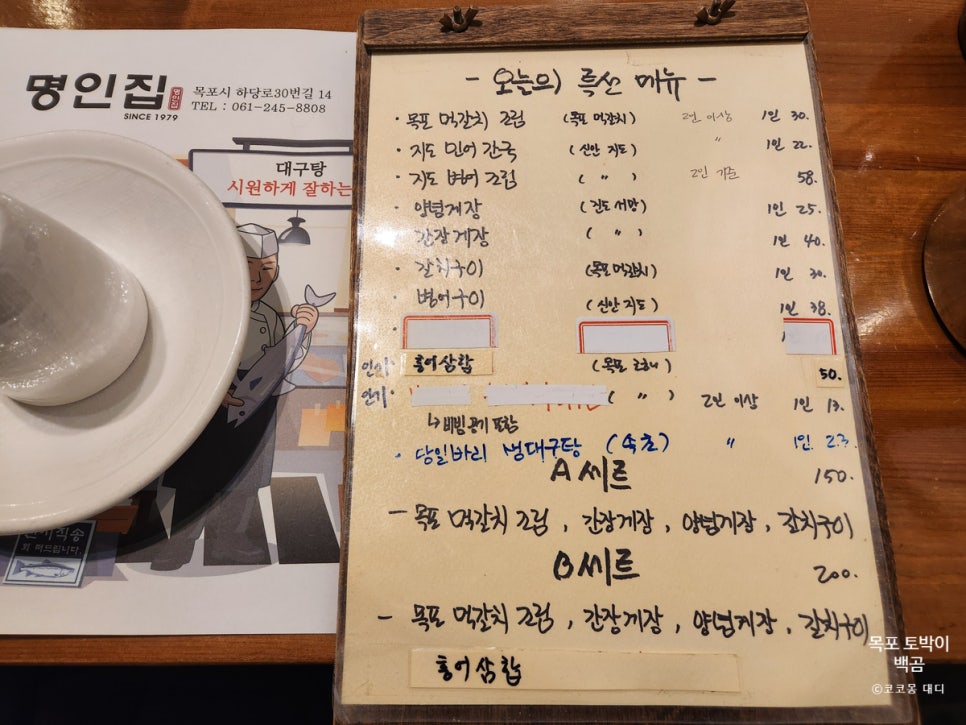 명인집
명인집
SINCE 1979
목포시 하당로30번길 14
TEL : 061-245-8808
대구탕
시원하게 잘하는
직송
회 떠드립니다.
- 오늘의 특선 메뉴 -
· 목포 먹갈치 조림 (목포 먹갈치) 2인 이상 1인 30.
· 지도 민어 간국 (신안 지도) " 1인 22.
· 지도 병어 조림 ( " ) 2인 기준 58.
· 양념게장 (진도 서망) 1인 25.
· 간장게장 ( " ) 1인 40.
· 갈치구이 (목포 먹갈치) 1인 30.
· 병어구이 (신안 지도) 1인 38.
홍어삼합 (목포 ) 50.
( " ) 2인 이상 1인 13.
↳ 비빔공기 포함
· 당일바리 생대구탕 (속초) " 1인 23.
A 씨트 150.
- 목포 먹갈치 조림, 간장게장, 양념게장, 갈치구이
B 씨트 200.
- 목포 먹갈치 조림, 간장게장, 양념게장, 갈치구이
홍어삼합
목포 토박이
백곰
©코코몽 대디